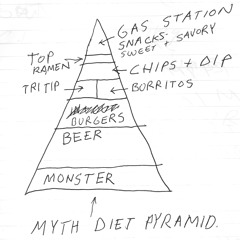 GAS STATION
SNACKS.
SWEET + SAVORY
TOP
RAMEN
CHIPS + DIP
TRI TIP
BURRITOS
BURGERS
BEER
MONSTER
MYTH DIET PYRAMID.